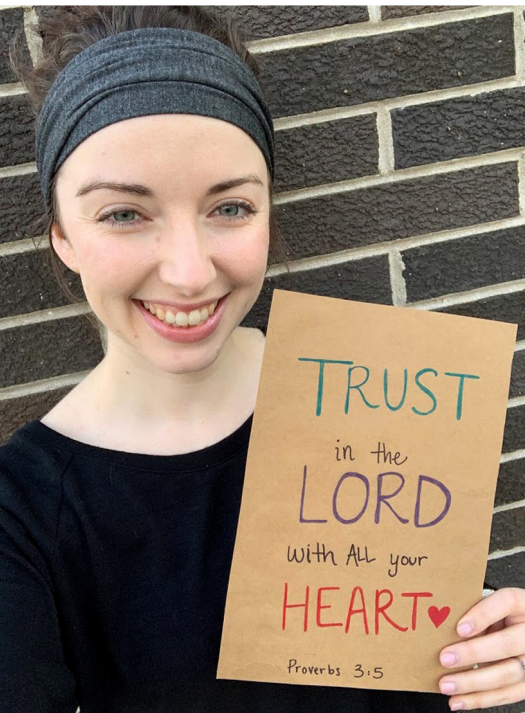 TRUST
in the
LORD
with ALL your
HEART♥
Proverbs 3:5